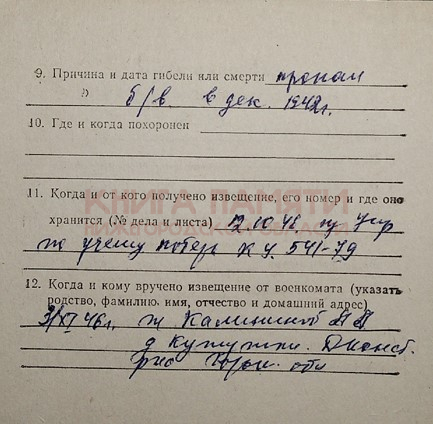 9. Причина и дата гибели или смерти пропал
б/в. в дек. 1942г.
10. Где и когда похоронен
11. Когда и от кого получено извещение, его номер и где оно
КНИГА ПАМЯТИ
хранится (№ дела и листа) 12.10.46 Упр
НИЖЕГОРОДСКОЙ ОБЛАСТИ
по учету потерь К.У. 541-79
12. Когда и кому вручено извещение от военкомата (указать
родство, фамилию, имя, отчество и домашний адрес)
XI 46г. ж Калининой
д
обл